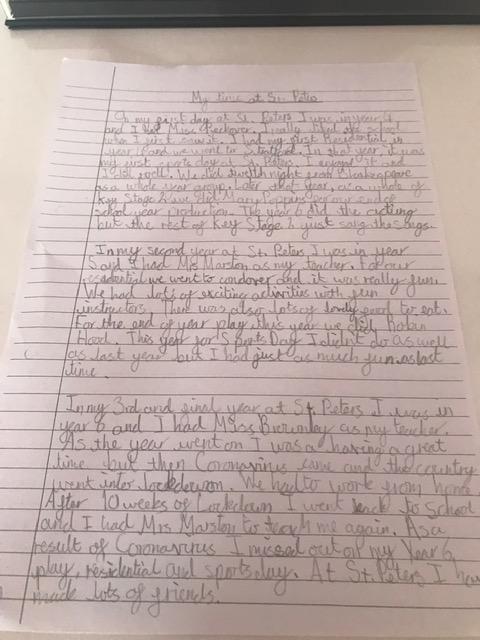 My time at St. Peters
On my first day at St. Peters I was in year 4,
and I had Miss I really liked the school
when I first saw it. I had my first Residential in
year 4 and we went to In that year, it was
my first sports day at St. Peters. I enjoyed it and
I did well. We did twelth night from Shakespeare
as a whole year group. Later that year, as a whole of
Key Stage 2 we did Mary Poppins for our end of
school year production. The year 6 did the acting
but the rest of Key Stage 2 just sang the songs.
In my second year at St. Peters I was in year
5 and I had Mrs Marston as my teacher. For our
residential we went to condover and it was really fun.
We had lots of exciting activities with fun
instructors. There was also lots of lovely food to eat.
For the end of year play this year we did Robin
Hood. This year for Sports Day I didn't do as well
as last year but I had just as much fun as last
time.
In my 3rd and final year at St. Peters I was in
year 6 and I had Miss as my teacher.
As the year went on I was a having a great
time but then Coronavirus came and the country
went into lockdown. We had to work from home.
After 10 weeks of Lockdown I went back to School
and I had Mrs Marston to teach me again. As a
result of Coronavirus I missed out on my Year 6
play, residential and sports day. At St. Peters I have
made lots of friends.